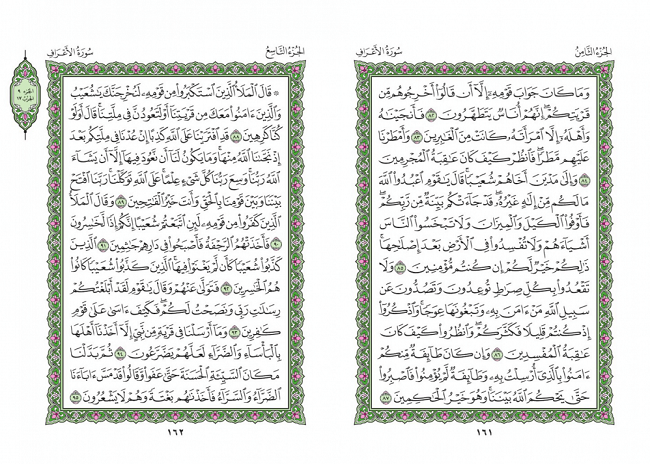 الجزء الثامن
سورة الأعراف
وَمَا كَانَ جَوَابَ قَوْمِهِۦٓ إِلَّآ أَن قَالُوٓاْ أَخْرِجُوهُم مِّن
قَرْيَتِكُمْۖ إِنَّهُمْ أُنَاسٌ يَتَطَهَّرُونَ ٨٢ فَأَنجَيْنَٰهُ
وَأَهْلَهُۥٓ إِلَّا ٱمْرَأَتَهُۥ كَانَتْ مِنَ ٱلْغَٰبِرِينَ ٨٣ وَأَمْطَرْنَا
عَلَيْهِم مَّطَرًاۖ فَٱنظُرْ كَيْفَ كَانَ عَٰقِبَةُ ٱلْمُجْرِمِينَ
٨٤ وَإِلَىٰ مَدْيَنَ أَخَاهُمْ شُعَيْبًاۚ قَالَ يَٰقَوْمِ ٱعْبُدُواْ ٱللَّهَ
مَا لَكُم مِّنْ إِلَٰهٍ غَيْرُهُۥۖ قَدْ جَآءَتْكُم بَيِّنَةٌ مِّن رَّبِّكُمْۖ
فَأَوْفُواْ ٱلْكَيْلَ وَٱلْمِيزَانَ وَلَا تَبْخَسُواْ ٱلنَّاسَ
أَشْيَآءَهُمْ وَلَا تُفْسِدُواْ فِي ٱلْأَرْضِ بَعْدَ إِصْلَٰحِهَاۚ
ذَٰلِكُمْ خَيْرٌ لَّكُمْ إِن كُنتُم مُّؤْمِنِينَ ٨٥ وَلَا
تَقْعُدُواْ بِكُلِّ صِرَٰطٍ تُوعِدُونَ وَتَصُدُّونَ عَن
سَبِيلِ ٱللَّهِ مَنْ ءَامَنَ بِهِۦ وَتَبْغُونَهَا عِوَجًاۚ وَٱذْكُرُوٓاْ
إِذْ كُنتُمْ قَلِيلًا فَكَثَّرَكُمْۖ وَٱنظُرُواْ كَيْفَ كَانَ
عَٰقِبَةُ ٱلْمُفْسِدِينَ ٨٦ وَإِن كَانَ طَآئِفَةٌ مِّنكُمْ
ءَامَنُواْ بِٱلَّذِيٓ أُرْسِلْتُ بِهِۦ وَطَآئِفَةٌ لَّمْ يُؤْمِنُواْ فَٱصْبِرُواْ
حَتَّىٰ يَحْكُمَ ٱللَّهُ بَيْنَنَاۚ وَهُوَ خَيْرُ ٱلْحَٰكِمِينَ ٨٧
١٦١
الجزء التاسع
سورة الأعراف
۞ قَالَ ٱلْمَلَأُ ٱلَّذِينَ ٱسْتَكْبَرُواْ مِن قَوْمِهِۦ لَنُخْرِجَنَّكَ يَٰشُعَيْبُ
وَٱلَّذِينَ ءَامَنُواْ مَعَكَ مِن قَرْيَتِنَآ أَوْ لَتَعُودُنَّ فِي مِلَّتِنَاۚ قَالَ أَوَلَوْ
كُنَّا كَٰرِهِينَ ٨٨ قَدِ ٱفْتَرَيْنَا عَلَى ٱللَّهِ كَذِبًا إِنْ عُدْنَا فِي مِلَّتِكُم بَعْدَ
إِذْ نَجَّىٰنَا ٱللَّهُ مِنْهَاۚ وَمَا يَكُونُ لَنَآ أَن نَّعُودَ فِيهَآ إِلَّآ أَن يَشَآءَ
ٱللَّهُ رَبُّنَاۚ وَسِعَ رَبُّنَا كُلَّ شَيْءٍ عِلْمًاۚ عَلَى ٱللَّهِ تَوَكَّلْنَاۚ رَبَّنَا ٱفْتَحْ
بَيْنَنَا وَبَيْنَ قَوْمِنَا بِٱلْحَقِّ وَأَنتَ خَيْرُ ٱلْفَٰتِحِينَ ٨٩ وَقَالَ ٱلْمَلَأُ
ٱلَّذِينَ كَفَرُواْ مِن قَوْمِهِۦ لَئِنِ ٱتَّبَعْتُمْ شُعَيْبًا إِنَّكُمْ إِذًا لَّخَٰسِرُونَ
٩٠ فَأَخَذَتْهُمُ ٱلرَّجْفَةُ فَأَصْبَحُواْ فِي دَارِهِمْ جَٰثِمِينَ ٩١ ٱلَّذِينَ
كَذَّبُواْ شُعَيْبًا كَأَن لَّمْ يَغْنَوْاْ فِيهَاۚ ٱلَّذِينَ كَذَّبُواْ شُعَيْبًا كَانُواْ
هُمُ ٱلْخَٰسِرِينَ ٩٢ فَتَوَلَّىٰ عَنْهُمْ وَقَالَ يَٰقَوْمِ لَقَدْ أَبْلَغْتُكُمْ
رِسَٰلَٰتِ رَبِّي وَنَصَحْتُ لَكُمْۖ فَكَيْفَ ءَاسَىٰ عَلَىٰ قَوْمٍ
كَٰفِرِينَ ٩٣ وَمَآ أَرْسَلْنَا فِي قَرْيَةٍ مِّن نَّبِيٍّ إِلَّآ أَخَذْنَآ أَهْلَهَا
بِٱلْبَأْسَآءِ وَٱلضَّرَّآءِ لَعَلَّهُمْ يَضَّرَّعُونَ ٩٤ ثُمَّ بَدَّلْنَا
مَكَانَ ٱلسَّيِّئَةِ ٱلْحَسَنَةَ حَتَّىٰ عَفَواْ وَّقَالُواْ قَدْ مَسَّ ءَابَآءَنَا
ٱلضَّرَّآءُ وَٱلسَّرَّآءُ فَأَخَذْنَٰهُم بَغْتَةً وَهُمْ لَا يَشْعُرُونَ ٩٥
١٦٢
الجزء ٩
الحزب ١٧